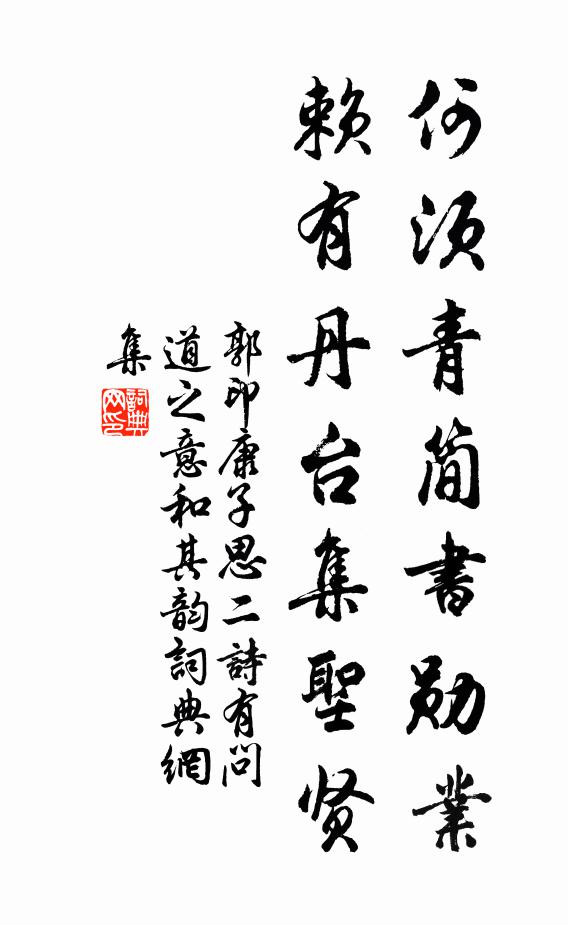 何须青简書勋業
賴有丹台集聖贤
郭印康子思二詩有問
道之意和其韵詞典網
集
詞典
网印